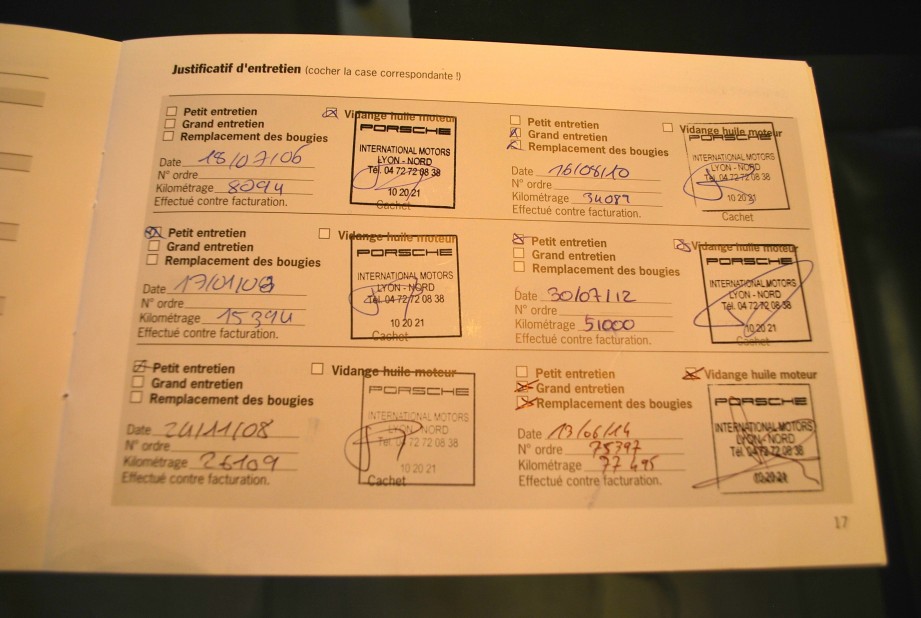 Justificatif d'entretien (cocher la case correspondante !)
Petit entretien
Vidange huile moteur
Grand entretien
Remplacement des bougies
Date 18/07/06
N° ordre
Kilométrage 8094
Effectué contre facturation.
PORSCHE
INTERNATIONAL MOTORS
LYON - NORD
Tél. 04 72 72 08 38
10 20 21
Cachet
Petit entretien
Vidange huile moteur
Grand entretien
Remplacement des bougies
Date 17/01/08
N° ordre
Kilométrage 15394
Effectué contre facturation.
PORSCHE
INTERNATIONAL MOTORS
LYON - NORD
Tél. 04 72 72 08 38
10 20 21
Cachet
Petit entretien
Vidange huile moteur
Grand entretien
Remplacement des bougies
Date 24/11/08
N° ordre
Kilométrage 26109
Effectué contre facturation.
PORSCHE
INTERNATIONAL MOTORS
LYON - NORD
Tél. 04 72 72 08 38
10 20 21
Cachet
Petit entretien
Vidange huile moteur
Grand entretien
Remplacement des bougies
Date 16/08/10
N° ordre
Kilométrage 34087
Effectué contre facturation.
PORSCHE
INTERNATIONAL MOTORS
LYON - NORD
Tél. 04 72 72 08 38
10 20 21
Cachet
Petit entretien
Vidange huile moteur
Grand entretien
Remplacement des bougies
Date 30/07/12
N° ordre
Kilométrage 51000
Effectué contre facturation.
PORSCHE
INTERNATIONAL MOTORS
LYON - NORD
Tél. 04 72 72 08 38
10 20 21
Cachet
Petit entretien
Vidange huile moteur
Grand entretien
Remplacement des bougies
Date 13/06/14
N° ordre 75397
Kilométrage 77495
Effectué contre facturation.
PORSCHE
INTERNATIONAL MOTORS
LYON - NORD
Tél. 04 72 72 08 38
10 20 21
17